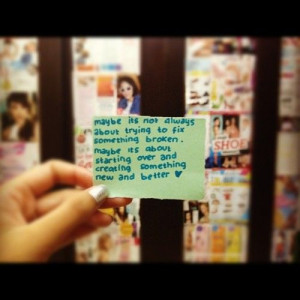 maybe its not always
about trying to fix
something broken.
maybe its about
starting over and
creating something
new and better ♥
SHOE